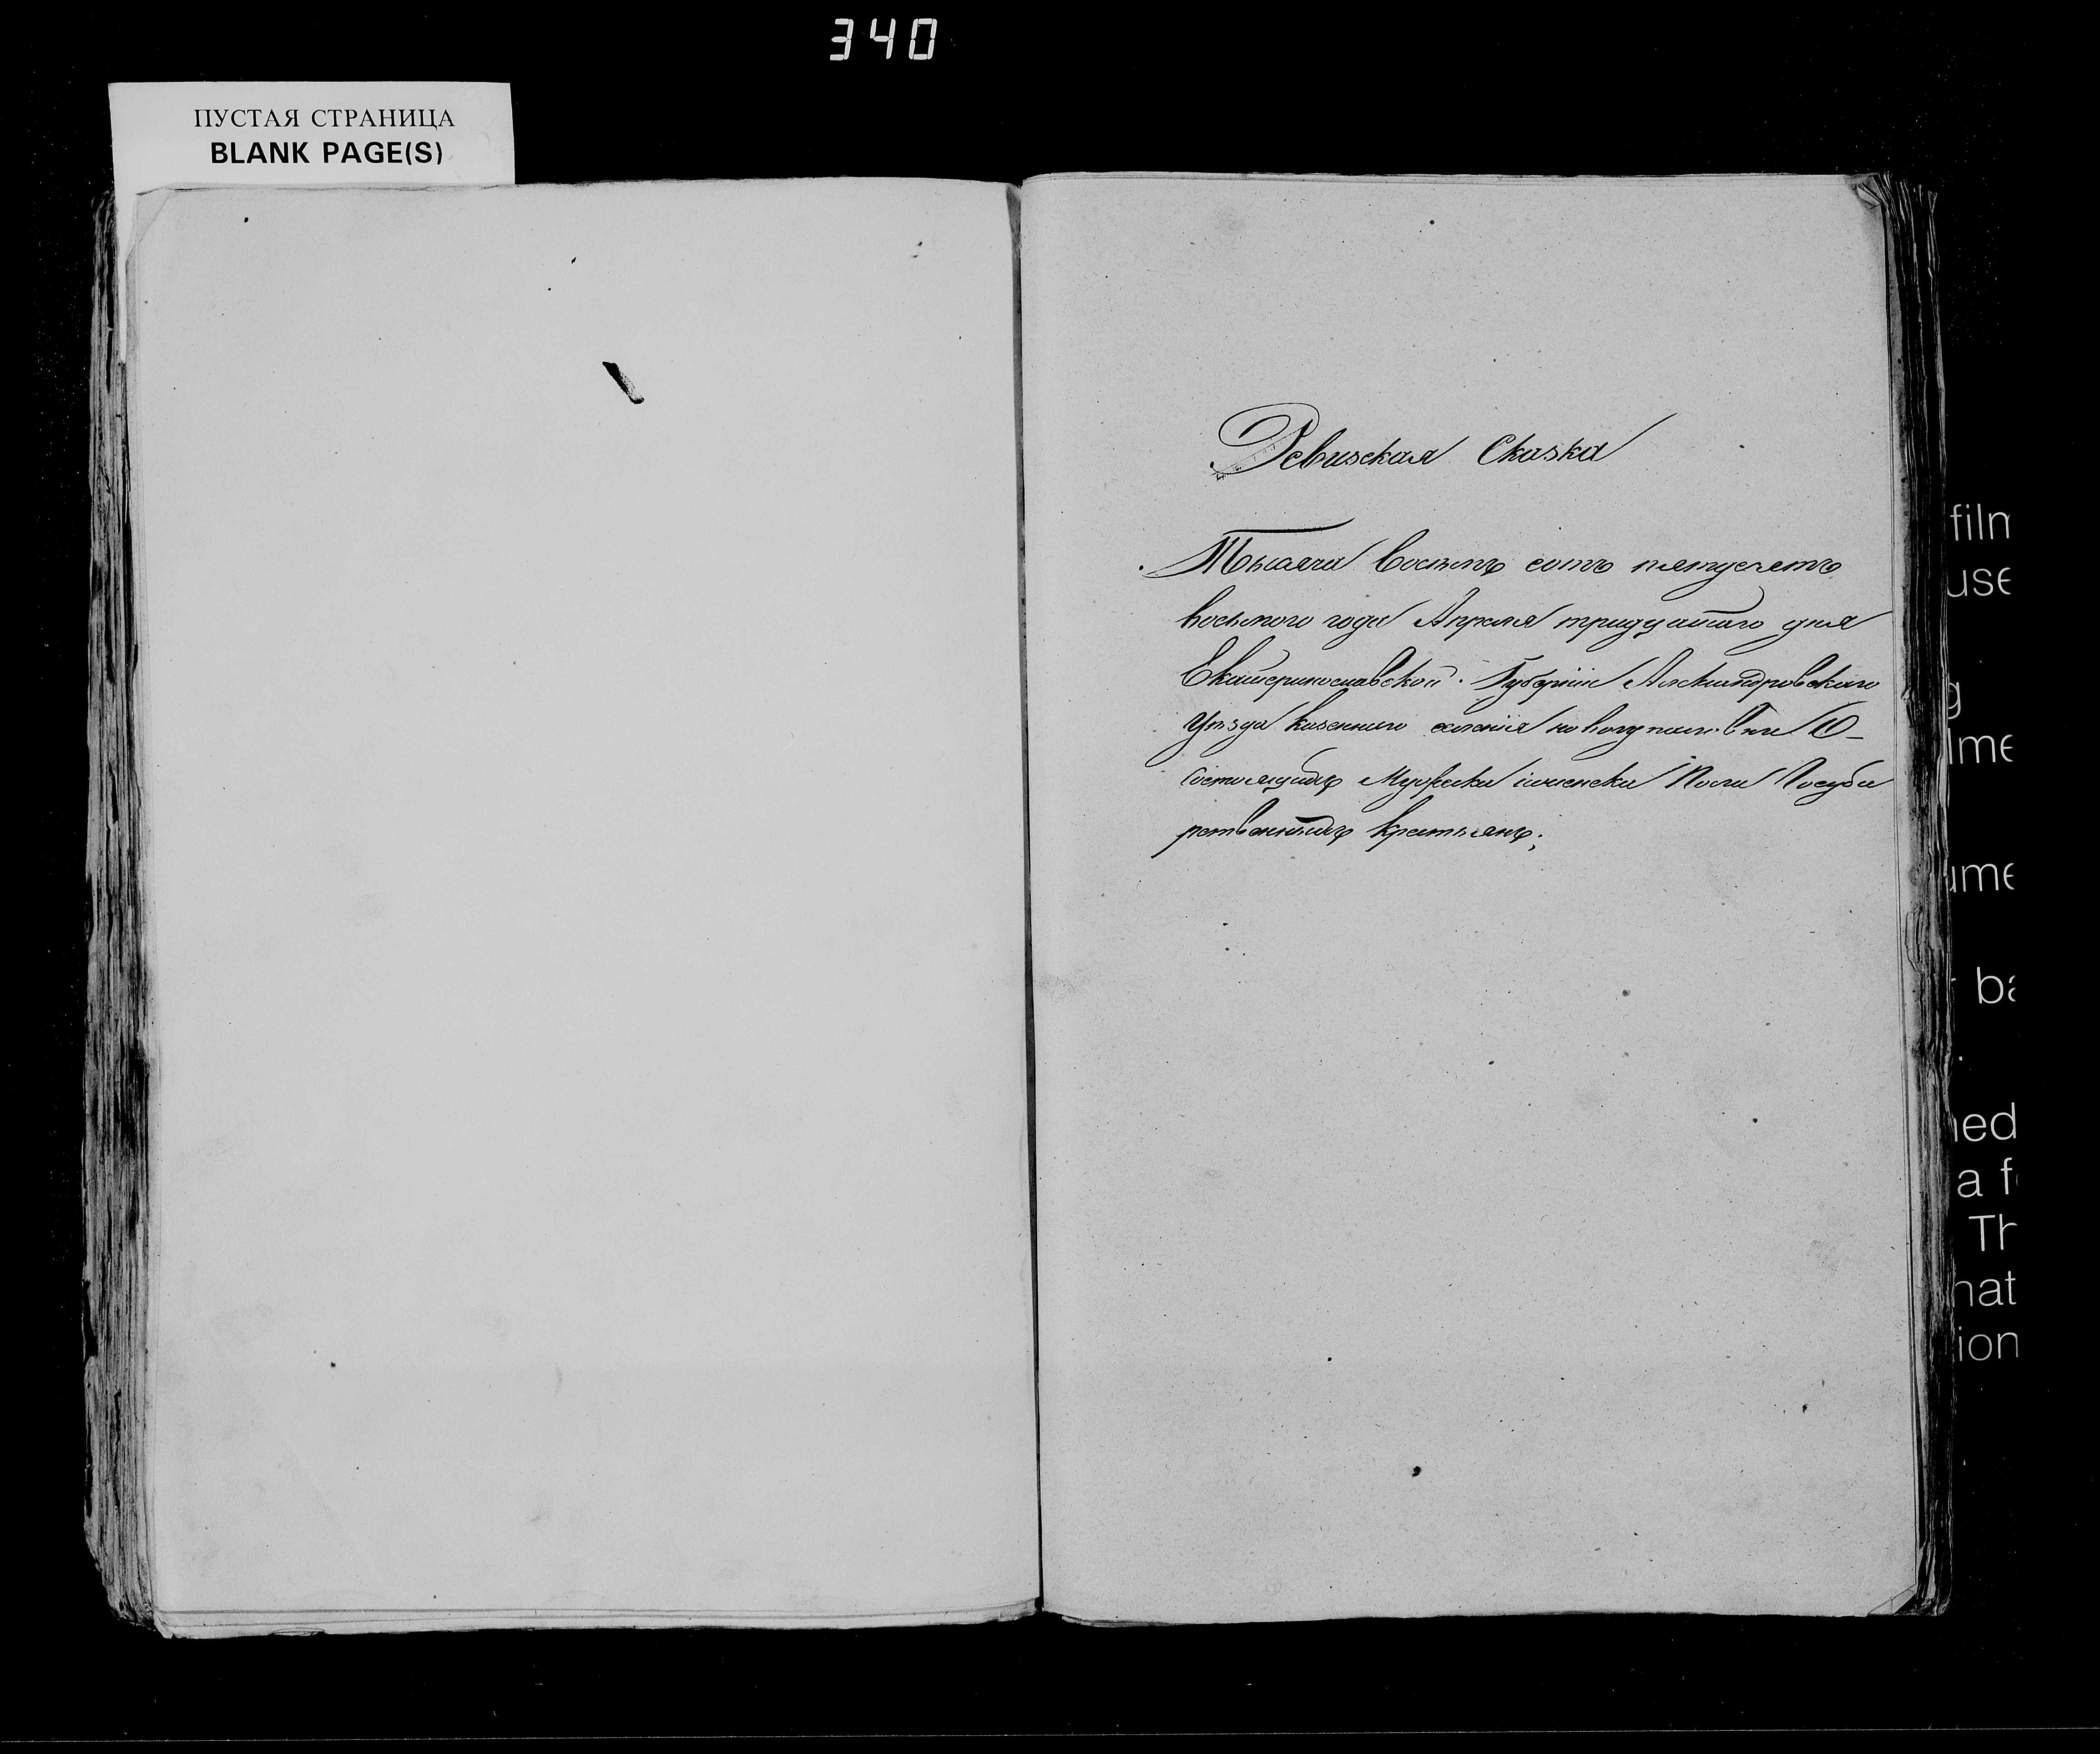 340
ПУСТАЯ СТРАНИЦА
BLANK PAGE(S)
Ревизская Сказка
Тысяча восемь сотъ пятдесятъ
восьмого года Апреля тридцатаго дня
Екатеринославской Губерніи Александровскаго
уезда казеннаго селенія О-
состоящихъ Мужеска и женска Пола Госуда
рственныхъ крестьянъ;
film
use
g
lme
ume
ba
ned
a f
Th
hat
ion